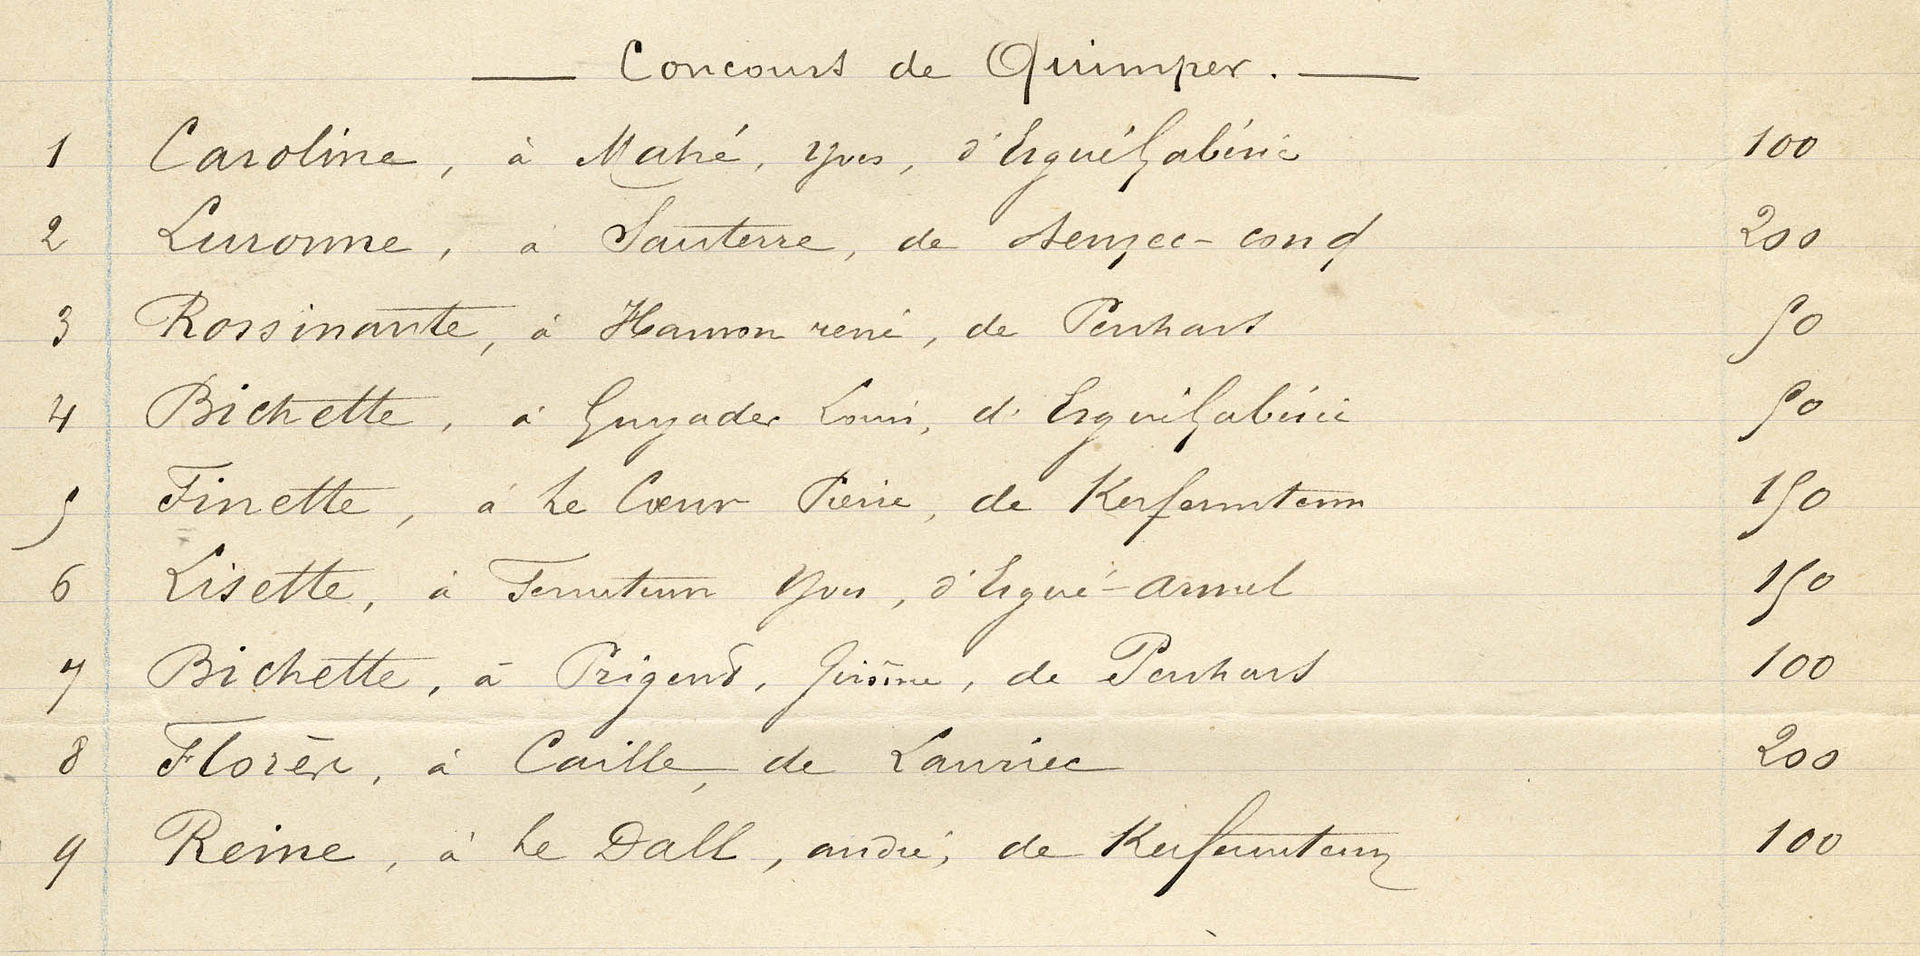 — Concours de Quimper. —
1 Caroline, à Mahé, Yves, d'Ergué Gabéric 100
2 Luronne, à Sauterre, de Beuzec-conq 200
3 Rossinante, à Hamon rené, de Penhars 50
4 Bichette, à Guyader Louis, d'Ergué Gabéric 50
5 Finette, à Le Cœur Pierre, de Kerfeunteun 150
6 Lisette, à Feunteun Yves, d'Ergué-Armel 150
7 Bichette, à Prigent, Jérôme, de Penhars 100
8 à Caille, de Lanriec 200
9 Reine, à Le Dall, andré, de Kerfeunteun 100